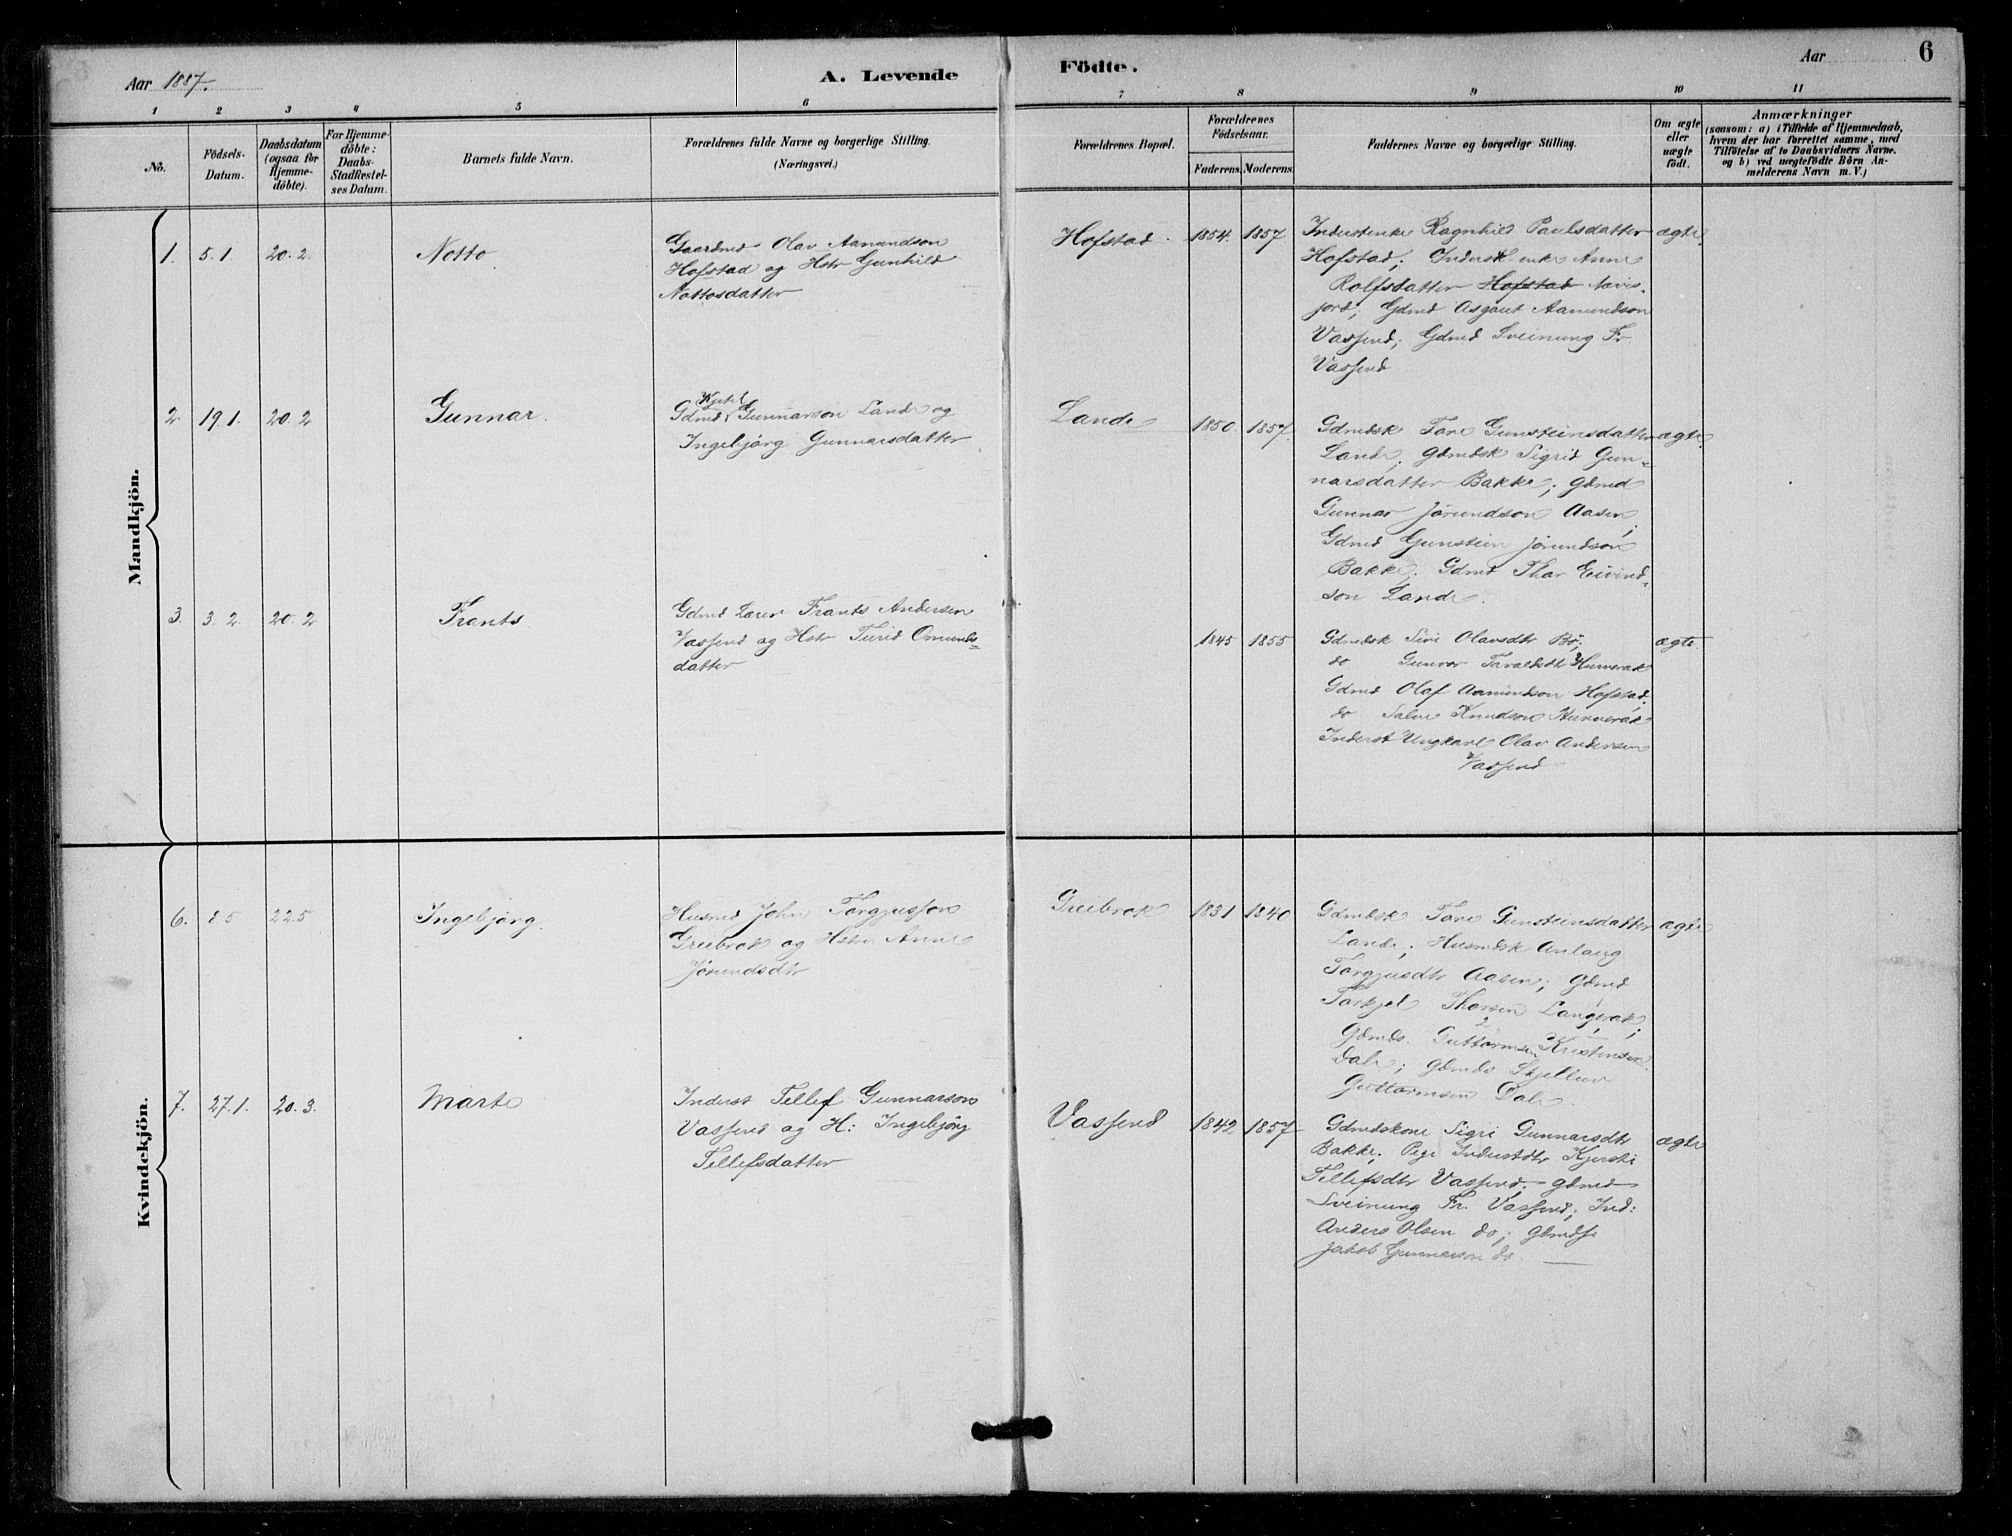 Aar 1887.
A. Levende
Födte.
Aar
6
1 2 3 4 5 6 7 8 9 10 11
No.
Födsels-
Datum.
Daabsdatum
(ogsaa for
Hjemme-
döbte).
For Hjemme-
döbte:
Daabs-
Stadfæstel-
ses Datum.
Barnets fulde Navn.
Forældrenes fulde Navne og borgerlige Stilling.
(Næringsvei.)
Forældrenes Bopæl.
Forældrenes
Födselsaar.
Faderens. Moderens.
Faddernes Navne og borgerlige Stilling.
Om ægte
eller
uægte
födt.
Anmærkninger
(saasom: a) i Tilfælde af Hjemmedaab,
hvem der har forrettet samme, med
Tilföielse af to Daabsvidners Navne.
og b) ved uægtefödte Börn An-
melderens Navn m. V.)
Mandkjön.
1. 5.1. 20.2. Notto
Gaardmd Olav Aamundson
Hofstad og Hstr Gunhild
Nottosdatter
Hofstad. 1854. 1857
Inderstenke Ragnhild Paulsdatter
Hofstad; Inderst enke Anne
Rolfsdatter Hofstad
jord; Gdmd Asgaut Aamundson
Vassend; Gdmd Sveinung Fr
Vassend
ægte.
2 19.1. 20.2 Gunnar.
Kjetil
Gdmd Gunnarson Lande og
Ingebjørg Gunnarsdatter
Lande 1850. 1857.
Gdmdsk Tore Gunsteinsdatter
Lande; Gdmdsk Sigrid Gun-
narsdatter Bakke; Gdmd
Gunnar Jørundson Aasen;
Gdmd Gunstein Jørundson
Bakke. Gdmd Thor Eivind-
son Lande.
ægte.
3. 3.2. 20.2 Frants.
Gdmd Lærer Frants Andersen
Vassend og Hstr Turid Omunds-
datter
1845 1855
Gdmdsk Siri Olavsdtr Bö;
do Gunvor Taraldsdtr
Gdmd Olaf Aamundson Hofstad.
do Salve Knudson
Inderst Ungkarl Olav Andersen
Vassend
ægte.
Kvindekjön.
6. 8.5 22.5 Ingebjørg.
Husmd John Torgjusson
Greibrok og Hstr Anne
Jørundsdtr
Greibrok 1831 1840
Gdmdsk Tore Gunsteinsdatter
Lande; Husmdsk Anlaug
Torgjusdtr Aasen; Gdmd
Torkjel Thorsen Langerak;
Gdmds. Guttormsen Kristensen
Dale; Gdmds
Guttormsen Dale
ægte
7. 27.1. 20.3. Marte
Inderst Tellef Gunnarson
Vassend og H: Ingebjörg
Tellefsdatter
Vassend 1842 1857
Gdmdskone Sigri Gunnarsdtr
Bakke; Pige Inderstdtr Kjersti
Tellefsdtr Vassend. Gdmd
Sveinung Fr. Vassend; Ind:
Anders Olsen do; Gdmds
Jakob Gunnarson do.
ægte